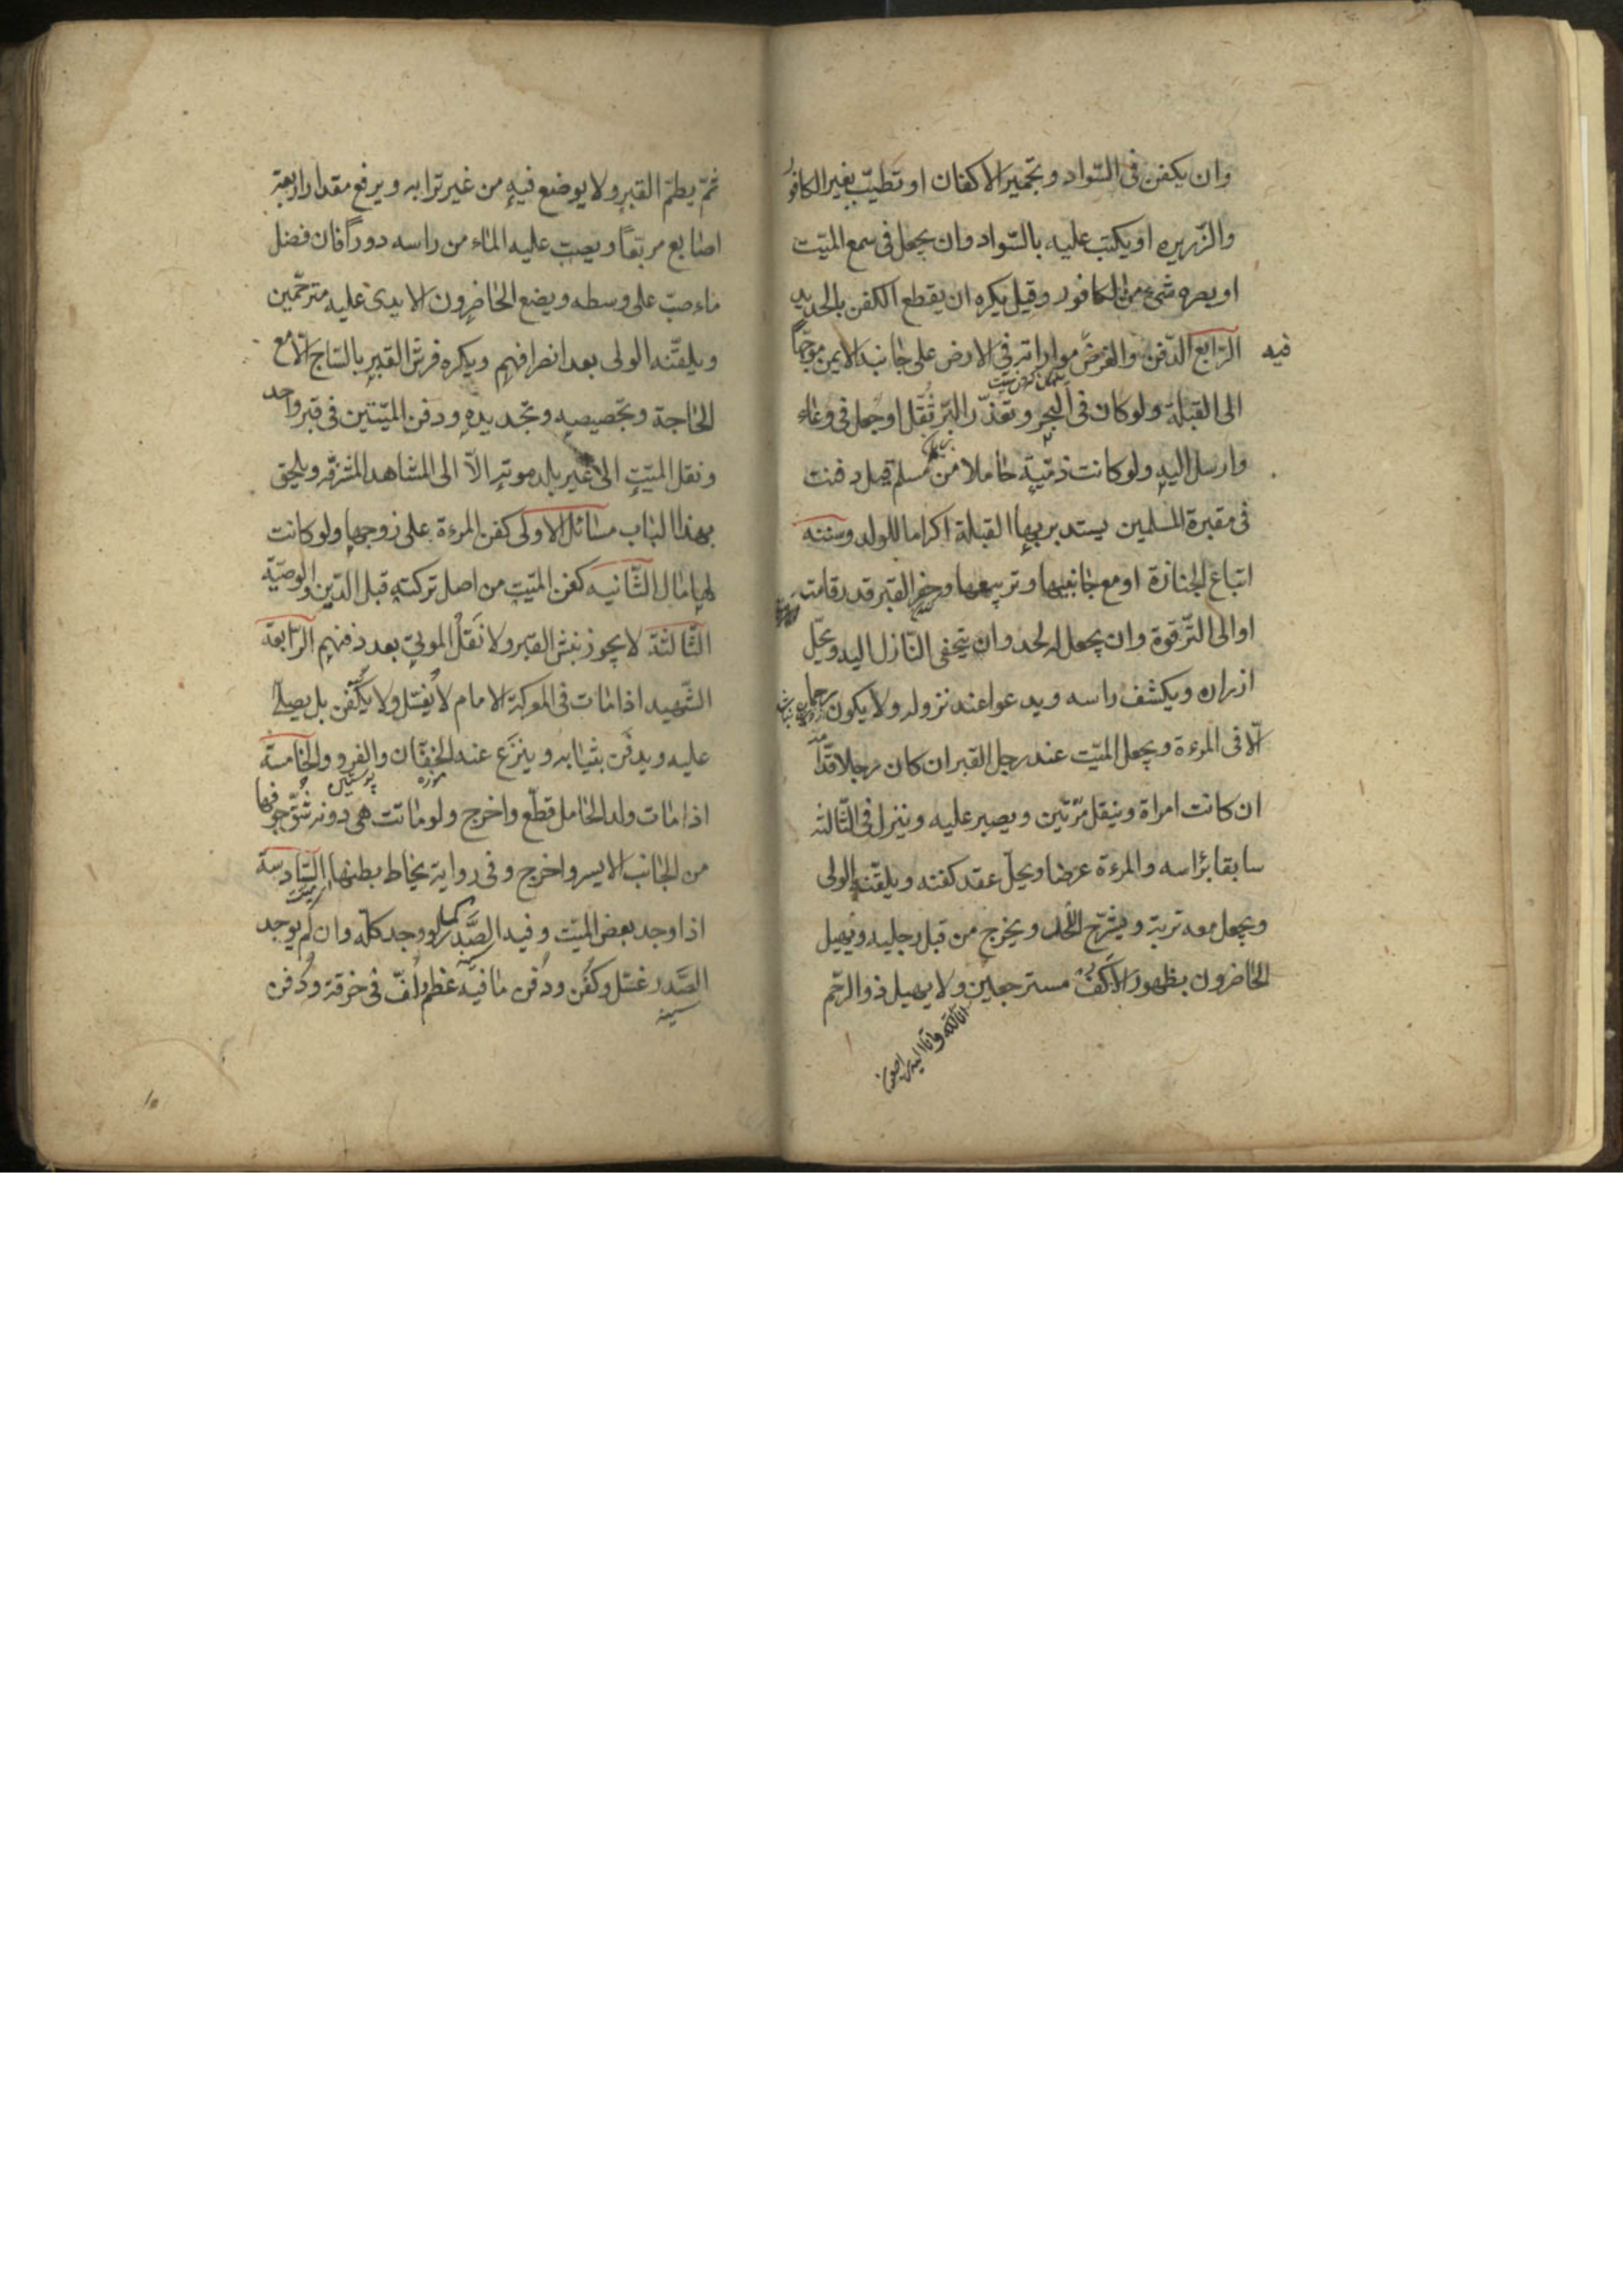 وان يكفن فى السّواد وتجمير الاكفان او تطيّب بغير الكافور
والزّريره او يكتب عليه بالسّواد وان يجعل فى سمع الميّت
او بصره شىء من الكافور وقيل يكره ان يقطع الكفن بالحديد
فيه
الرّابع الدّفن والفرض مواراته فى الارض على جانبه الايمن موجّهاً
الى القبلة ولو كان فى البحر وتعذّر البرّ ثُقّل او جُعل فى وعاء
وارسل اليهِ ولو كانت ذمّيّة حاملا من مسلم قيل دفنت
فى مقبرة المسلمين يستدبر بها القبلة اكراما للولد وسننه
اتباع الجنازة او مع جانبيها وتربيعها وحفر القبر قدر قامت
او الى التّرقوة وان يجعل له لحد وان يتحفى النّازل اليه ويحلّ
ازراره ويكشف راسه ويدعوا عند نزوله ولا يكون رحما
الّا فى المرءة ويجعل الميّت عند رجل القبر ان كان رجلا قدّامه
ان كانت امراة وينقل مرّتين ويصبر عليه وينزل فى الثّالثه
سابقا برأسه والمرءة عرضا ويحلّ عقد كفنه ويلقّنه الولى
ويجعل معه تربة ويشرّح اللّحد ويخرج من قبل رجليه ويهيل
الحاضرون بظهور الاكفّ مسترجعين ولا يهيل ذو الرّحم
انا لله وانا اليه راجعون
ثمّ يطمّ القبر ولا يوضع فيهِ من غير ترابه ويرفع مقدار اربعة
اصابع مربّعاً ويصب عليه الماء من راسه دوراً فان فضل
ماء صبّ على وسطه ويضع الحاضرون الايدى عليه مترحّمين
ويلقّنه الولى بعد انصرافهم ويكره فرش القبر بالسّاج الّا مع
الحاجة وتجصيصه وتجديدهِ ودفن الميّتين فى قبر واحد
ونقل الميّتِ الى غير بلد موتهِ الّا الى المشاهد المشرّفه ويلحق
بهذا الباب مسائل الاولى كفن المرءة على زوجها ولو كانت
لها مال الثّانيه كفن الميّتِ من اصل تركتهِ قبل الدّين والوصيّة
الثّالثة لا يجوز نبش القبر ولا نَقلُ الموتى بعد دفنهم الرّابعة
الشّهيد اذا مات فى المعركة الامام لا يُغسّل ولا يُكفّن بل يصلّى
عليه ويدفن بثيابه وينزع عنه الخفّان والفرو والخامسة
موزه
پوستين
اذا مات ولد الحامل قطّع واخرج ولو ماتت هى دونه شُقّ جوفها
من الجانب الايسر واخرج وفى رواية يخاط بطنها السّادسة
اذا وجد بعض الميّت وفيه الصَّدر كما لو وجد كلّه وان لم يوجد
سينه
الصَّدر غسّل وكفّن ودُفن ما فيه عظم ولُفّ فى خرقة ودُفن
سينه
١٥